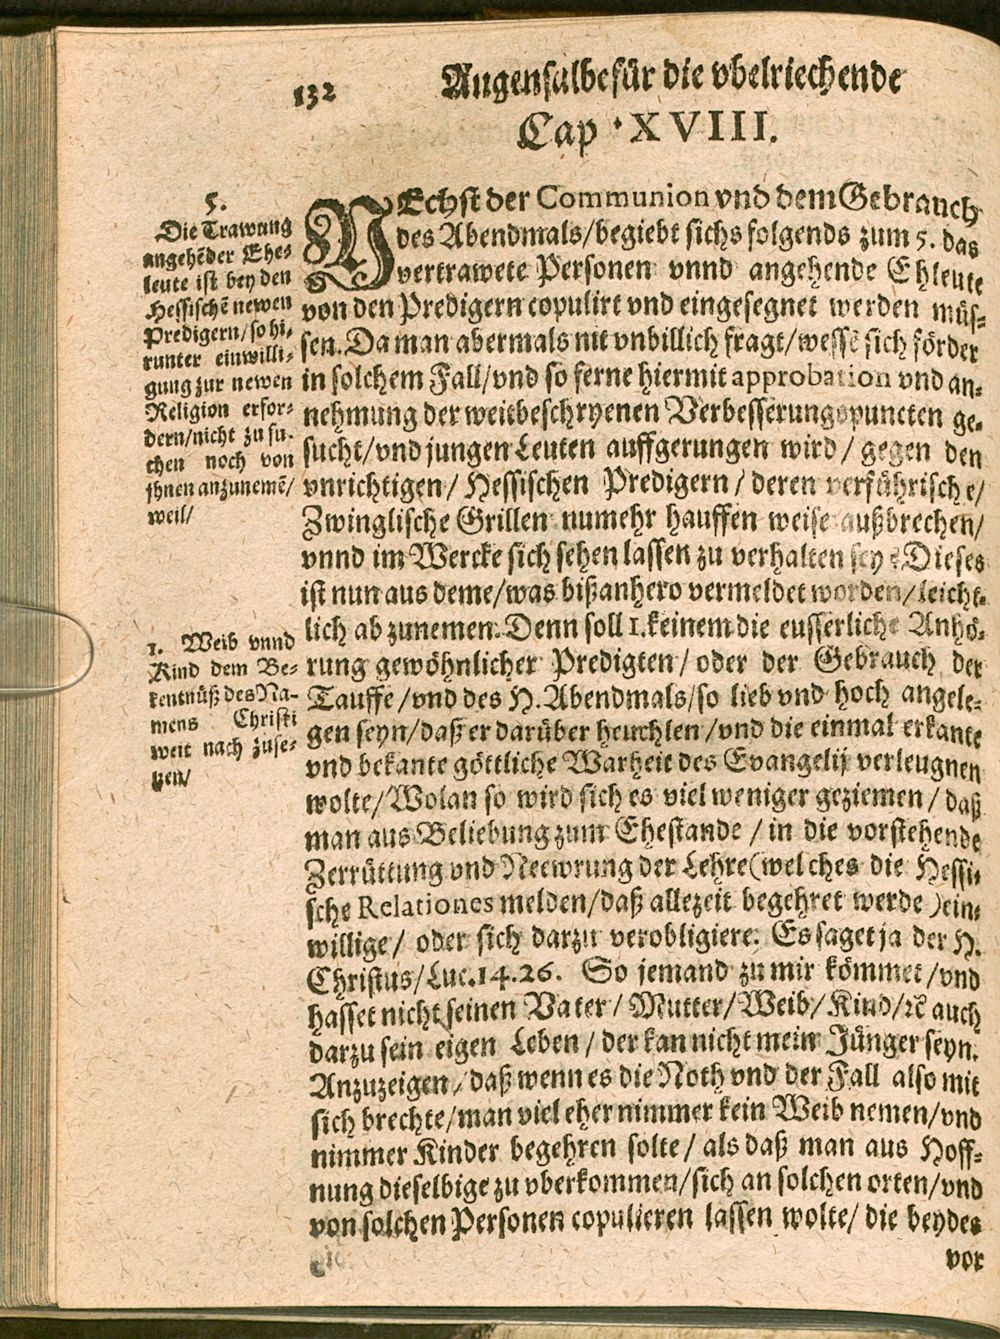 132
Augensalbe für die vbelriechende
Cap . XVIII.
5.
Die Trawung
angehēder Ehe-
leute ist bey den
Hessischē newen
Predigern/so hi-
runter einwilli-
gung zur newen
Religion erfor-
dern/nicht zu su-
chen noch von
jhnen anzunemē/
weil/
1. Weib vnnd
Kind dem Be-
kentnüß des Na-
mens Christi
weit nach zuse-
tzen/
NEchst der Communion vnd dem Gebrauch
des Abendmals/begiebt sichs folgends zum 5. das
vertrawete Personen vnnd angehende Ehleute
von den Predigern copulirt vnd eingesegnet werden müs-
sen. Da man abermals nit vnbillich fragt/wessē sich förder
in solchem Fall/vnd so ferne hiermit approbation vnd an-
nehmung der weitbeschryenen Verbesserungspuncten ge-
sucht/vnd jungen Leuten auffgerungen wird/ gegen den
vnrichtigen/ Hessischen Predigern/ deren verführische/
Zwinglische Grillen numehr hauffen weise außbrechen/
vnnd im Wercke sich sehen lassen zu verhalten sey? Dieses
ist nun aus deme/was bißanhero vermeldet worden/leicht-
lich abzunemen. Denn soll 1. keinem die eusserliche Anhö-
rung gewöhnlicher Predigten/ oder der Gebrauch der
Tauffe/vnd des H. Abendmals/so lieb vnd hoch angele-
gen seyn/daß er darüber heuchlen/vnd die einmal erkante
vnd bekante göttliche Warheit des Evangelij verleugnen
wolte/Wolan so wird sich es viel weniger geziemen/ daß
man aus Beliebung zum Ehestande/ in die vorstehende
Zerrüttung vnd Neewrung der Lehre(welches die Hessi-
sche Relationes melden/daß allezeit begehret werde)ein-
willige/ oder sich darzu verobligiere. Es saget ja der H.
Christus/Luc. 14. 26. So jemand zu mir kömmet/vnd
hasset nicht seinen Vater/ Mutter/Weib/ Kind/ꝛc̄ auch
darzu sein eigen Leben/ der kan nicht mein Jünger seyn.
Anzuzeigen/daß wenn es die Noth vnd der Fall also mit
sich brechte/man viel eher nimmer kein Weib nemen/vnd
nimmer Kinder begehren solte/ als daß man aus Hoff-
nung dieselbige zu vberkommen/sich an solchen orten/vnd
von solchen Personen copulieren lassen wolte/ die beydes
vor